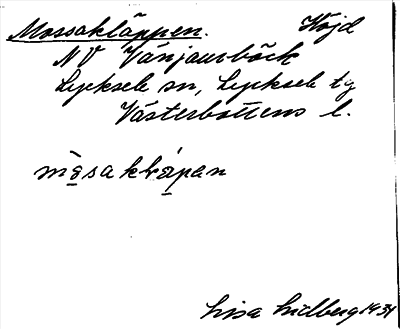 Mossakläppen. Höjd
NV Vänjaurbäck
Lycksele sn, Lycksele tg
Västerbottens l.
Lisa Lidberg 1931